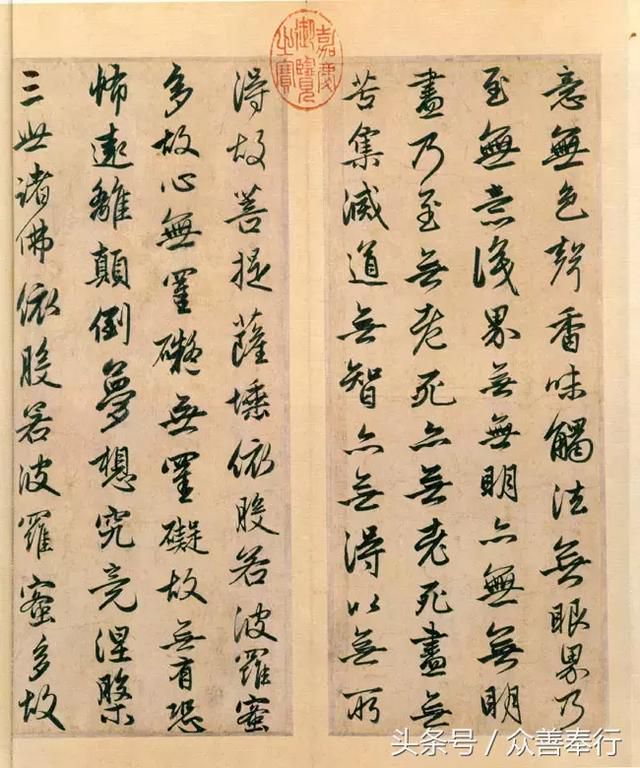 嘉慶
御覽
之寶
意無色聲香味觸法無眼界乃
至無意識界無無明亦無無明
盡乃至無老死亦無老死盡無
苦集滅道無智亦無得以無所
得故菩提薩埵依般若波羅蜜
多故心無罣礙無罣礙故無有恐
怖遠離顛倒夢想究竟涅槃
三世諸佛依般若波羅蜜多故
头条号 / 众善奉行